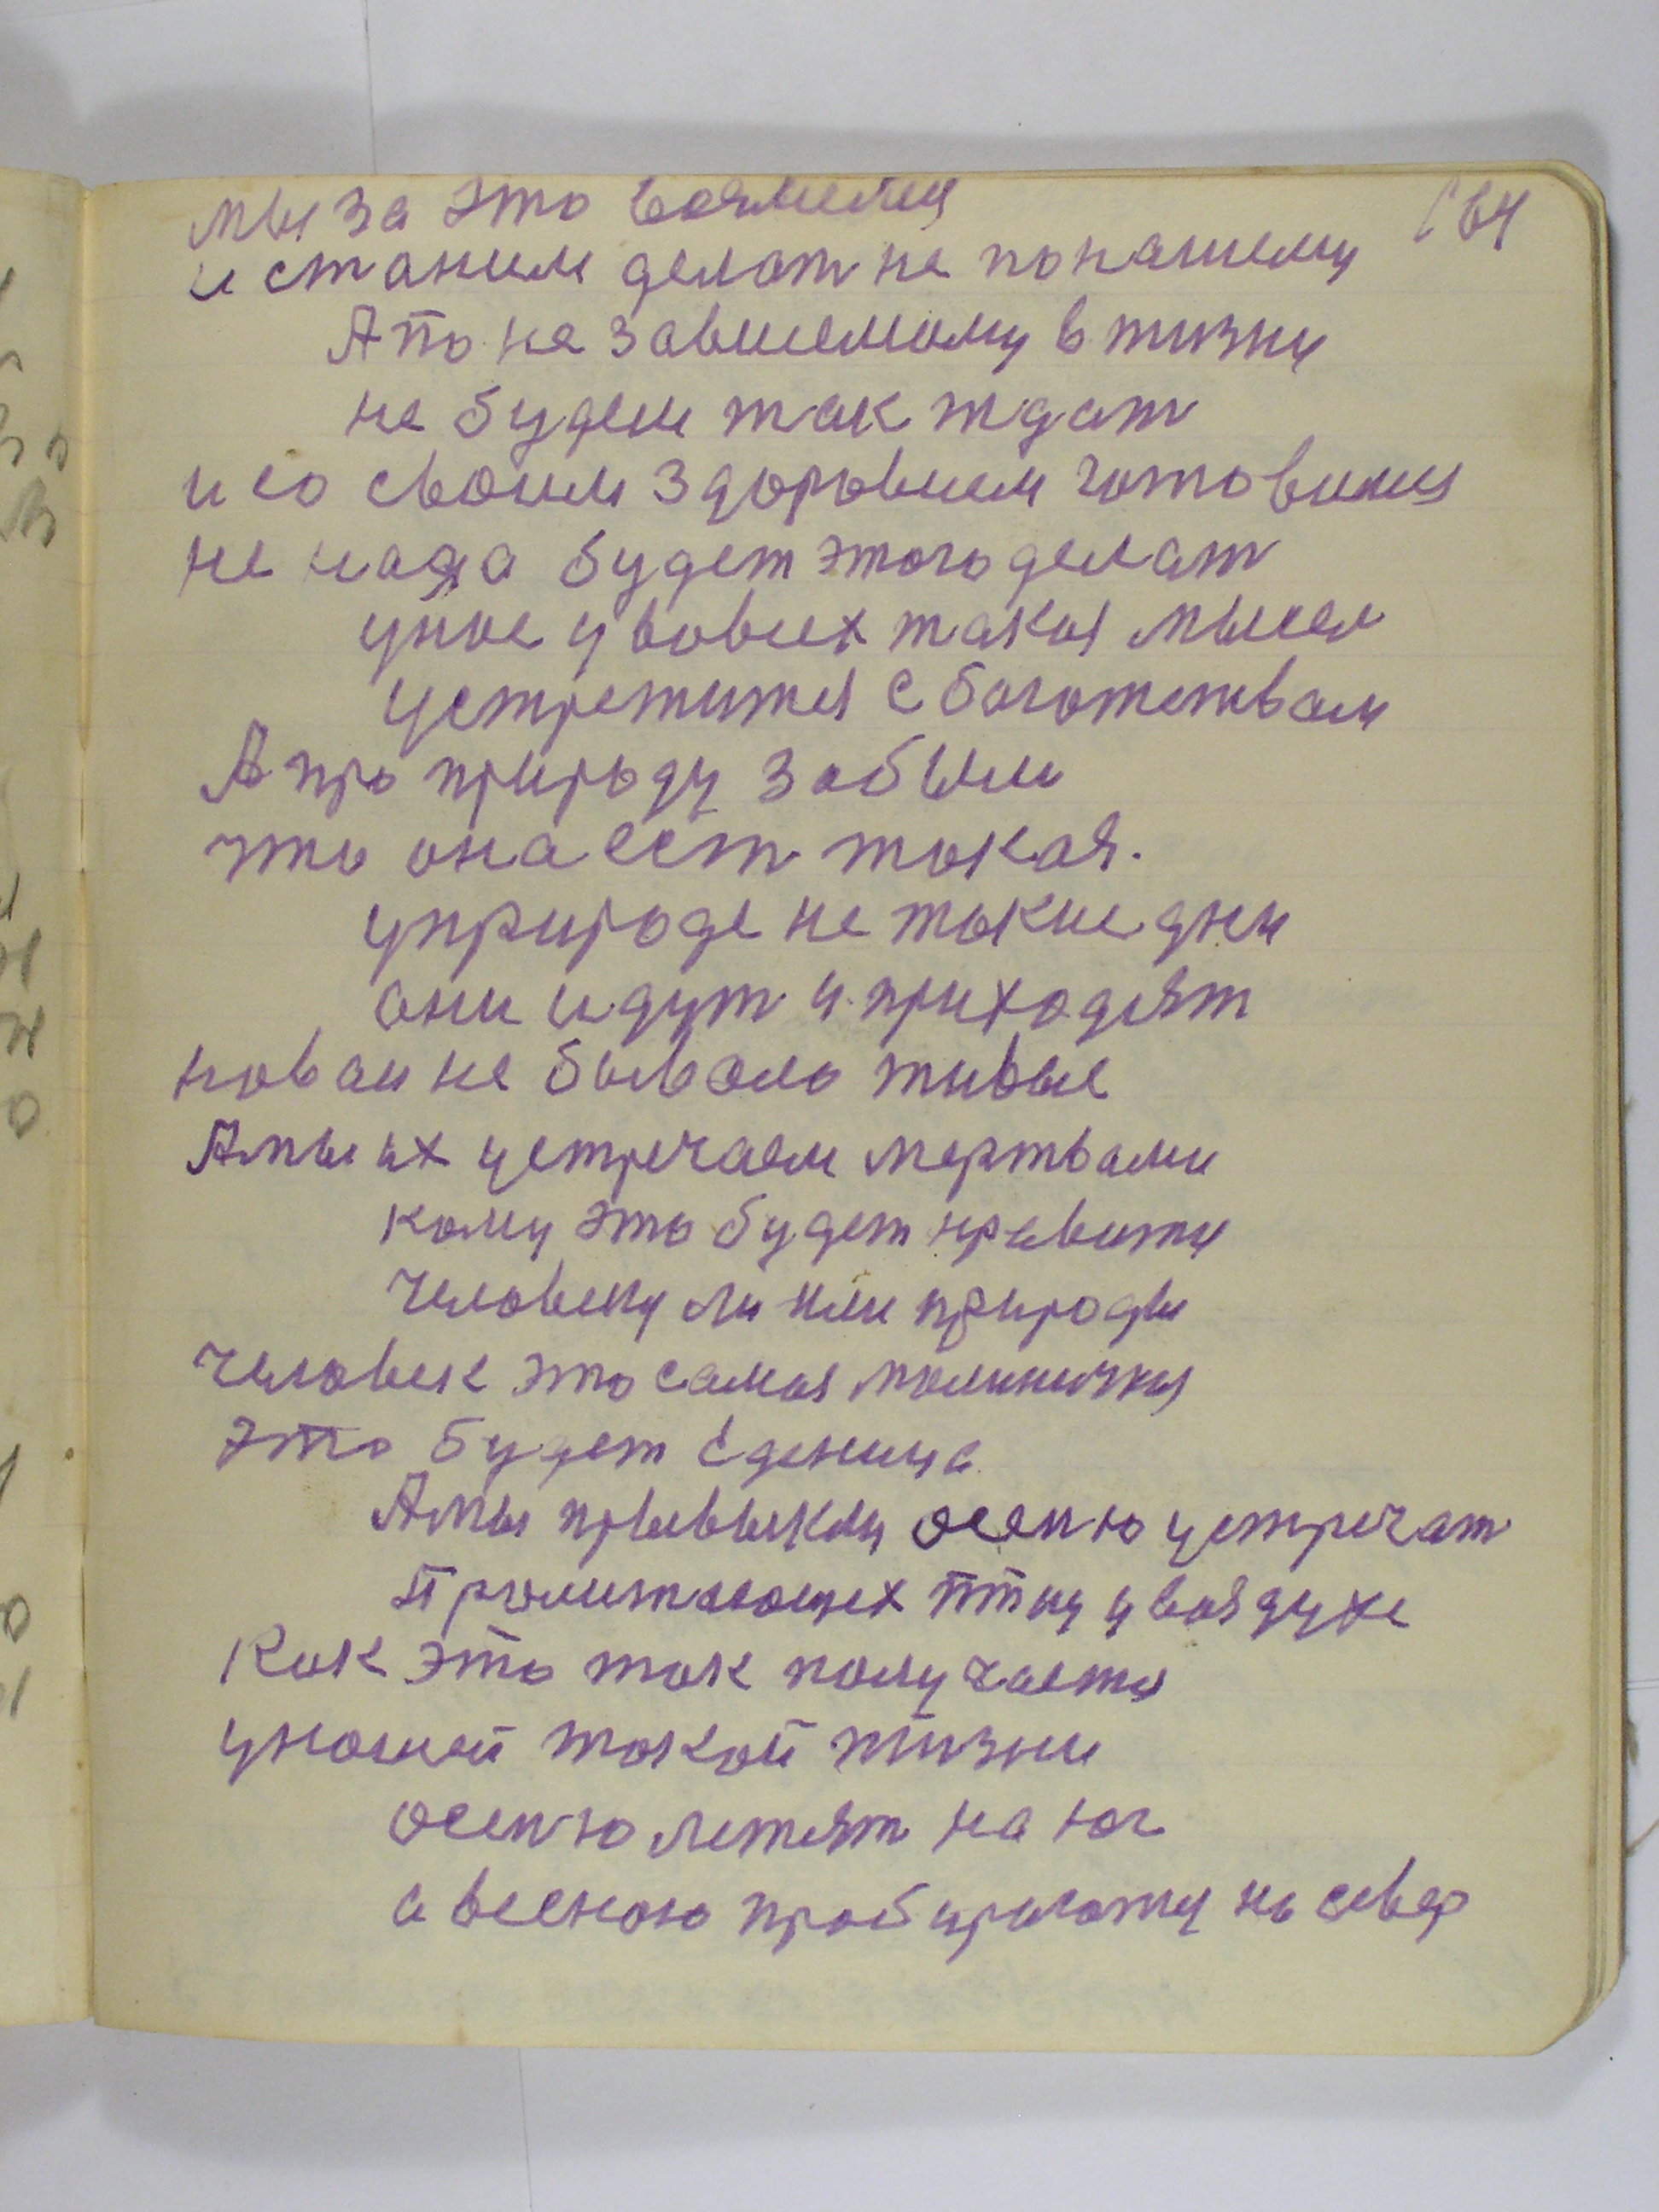 мы за это возмемся
и станим делат не понашему
А по не зависемому в жизни
не будем так ждат
и со своим здоровием готовимся
не нада будет этого делат
у нас у во всех такая мысел
устретится с богатством
А про природу забыли
что она ест такая.
у природе не такие дни
они идут и приходят
нован не бывало живые
А мы их устречаем мертвами
кому это будет нравится
человеку ли или природы
человек это самая
это будет еденица
А мы прывыкли осенью устречат
Пролитающех птиц у воздухе
Как это так получается
у нашей такой жизни
осенью летят на юг
а весною пробираются на север